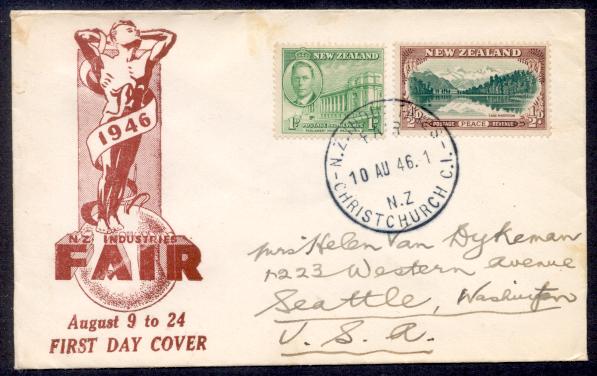 1946
N.Z. INDUSTRIES
FAIR
August 9 to 24
FIRST DAY COVER
NEW ZEALAND
1D 1D
POSTAGE
NEW ZEALAND
LAKE MATHESON
1/2D 1/2D
POSTAGE PEACE REVENUE
N.Z.
FAIR
10 AU 46.1
N.Z
CHRISTCHURCH C.1.
Mrs Helen Van Dykeman
Western Avenue
Seattle, Washington
U.S.A.